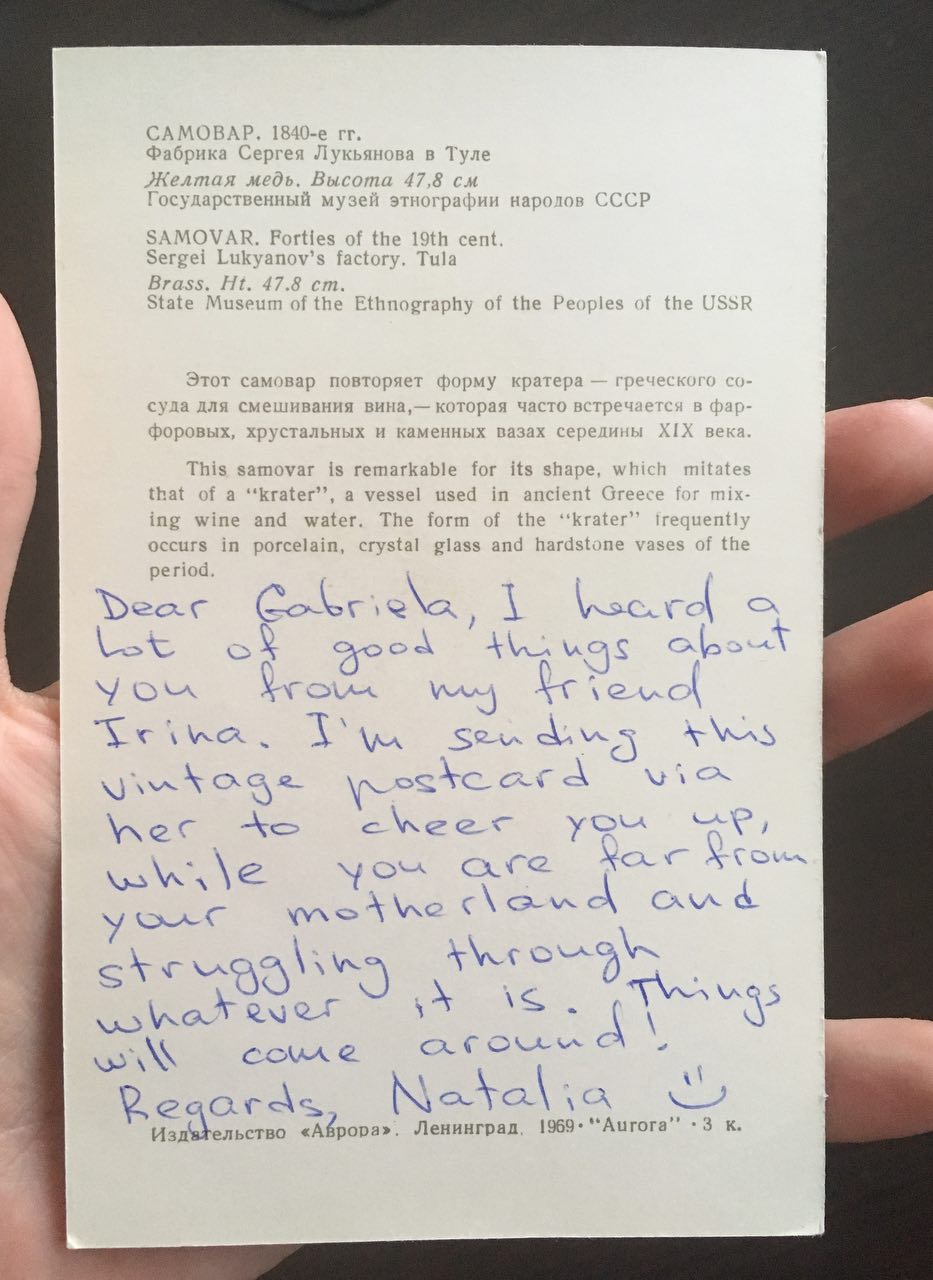 САМОВАР. 1840-е гг.
Фабрика Сергея Лукьянова в Туле
Желтая медь. Высота 47,8 см
Государственный музей этнографии народов СССР
SAMOVAR. Forties of the 19th cent.
Sergei Lukyanov's factory. Tula
Brass. Ht. 47.8 cm.
State Museum of the Ethnography of the Peoples of the USSR
Этот самовар повторяет форму кратера — греческого со-
суда для смешивания вина,— которая часто встречается в фар-
форовых, хрустальных и каменных вазах середины XIX века.
This samovar is remarkable for its shape, which mitates
that of a “krater”, a vessel used in ancient Greece for mix-
ing wine and water. The form of the “krater” frequently
occurs in porcelain, crystal glass and hardstone vases of the
period.
Dear Gabriela, I heard a
lot of good things about
you from my friend
Irina. I'm sending this
vintage postcard via
her to cheer you up,
while you are far from
your motherland and
struggling through
whatever it is. Things
will come around!
Regards, Natalia
Издательство «Аврора». Ленинград. 1969 · “Aurora” · 3 к.